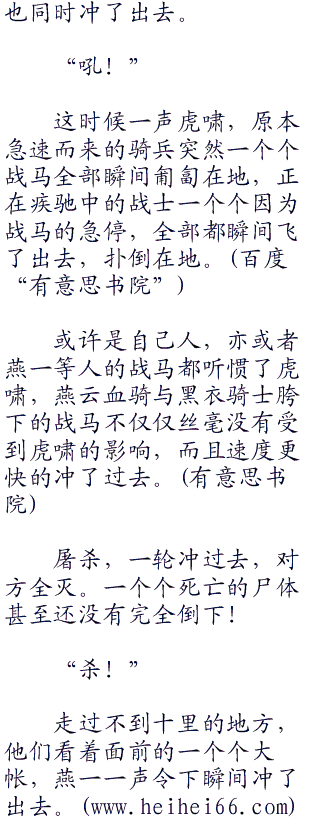 也同时冲了出去。
“吼！”
这时候一声虎啸，原本
急速而来的骑兵突然一个个
战马全部瞬间匍匐在地，正
在疾驰中的战士一个个因为
战马的急停，全部都瞬间飞
了出去，扑倒在地。(百度
“有意思书院”)
或许是自己人，亦或者
燕一等人的战马都听惯了虎
啸，燕云血骑与黑衣骑士胯
下的战马不仅仅丝毫没有受
到虎啸的影响，而且速度更
快的冲了过去。(有意思书
院)
屠杀，一轮冲过去，对
方全灭。一个个死亡的尸体
甚至还没有完全倒下！
“杀！”
走过不到十里的地方，
他们看着面前的一个个大
帐，燕一一声令下瞬间冲了
出去。(www.heihei66.com)